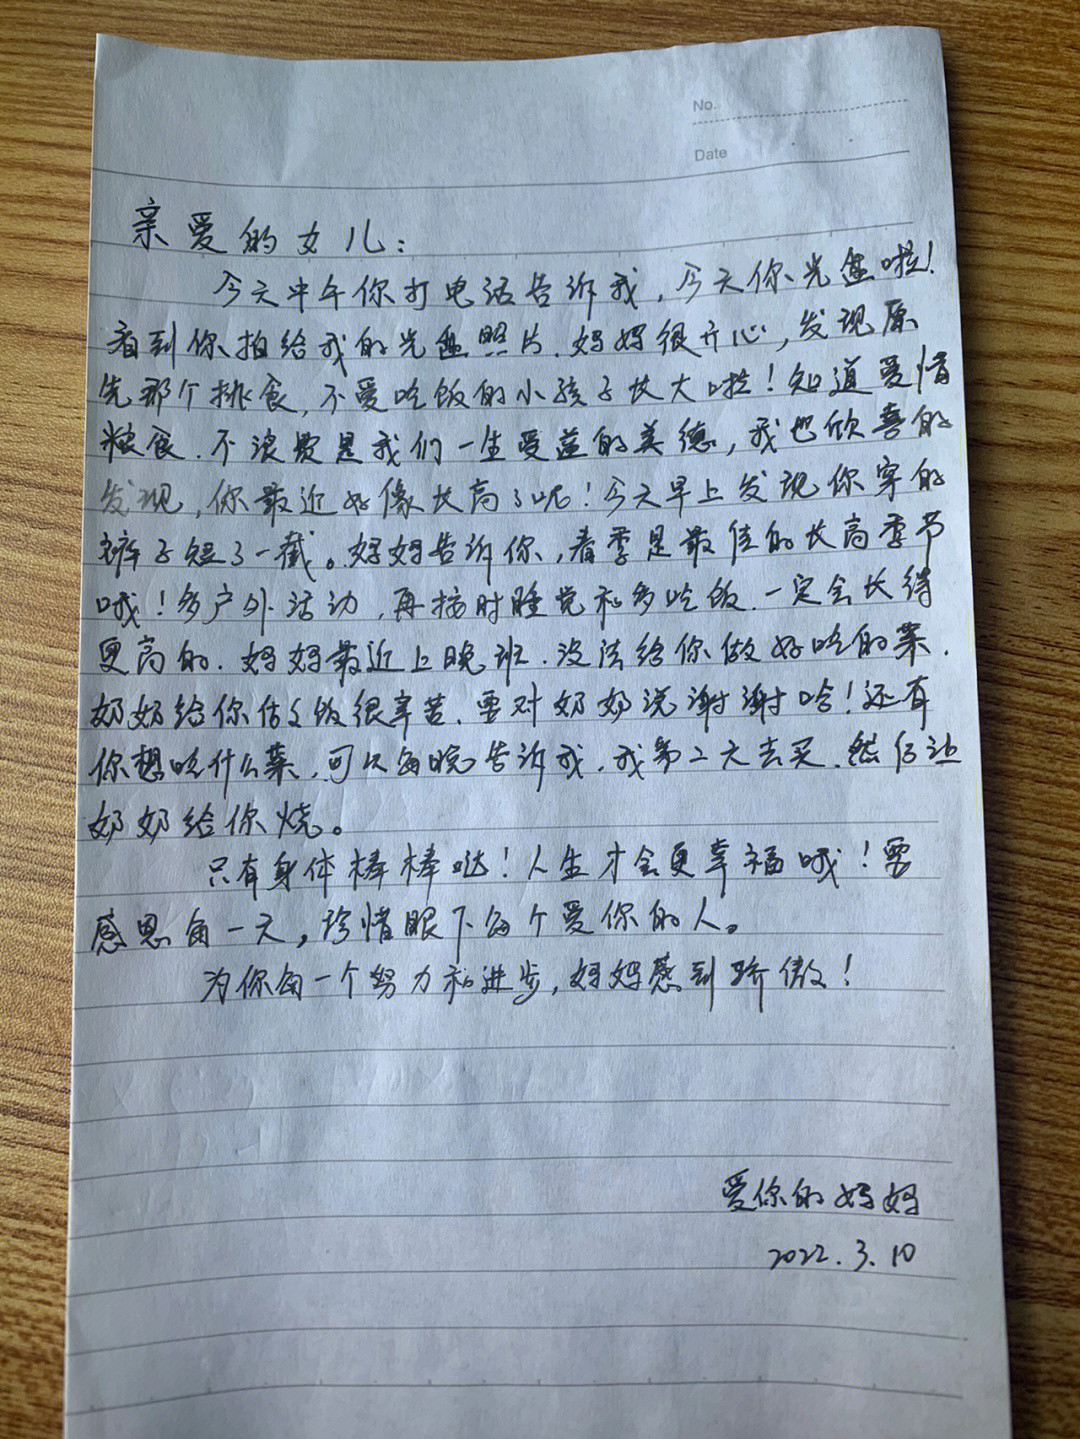 No.
Date
亲爱的女儿：
今天中午你打电话告诉我，今天你光盘啦！
看到你拍给我的光盘照片，妈妈很开心，发现原
先那个挑食，不爱吃饭的小孩子长大啦！知道爱惜
粮食，不浪费是我们一生受益的美德，我也欣喜的
发现，你最近好像长高了呢！今天早上发现你穿的
裤子短了一截。妈妈告诉你，春季是最佳的长高季节
哦！多户外活动，再按时睡觉和多吃饭，一定会长得
更高的，妈妈最近上晚班，没法给你做好吃的菜，
奶奶给你做饭很辛苦，要对奶奶说谢谢哈！还有
你想吃什么菜，可以每晚告诉我，我第二天去买，然后让
奶奶给你烧。
只有身体棒棒哒！人生才会更幸福哦！要
感恩每一天，珍惜眼下每个爱你的人。
为你每一个努力和进步，妈妈感到骄傲！
爱你的妈妈
2022.3.10